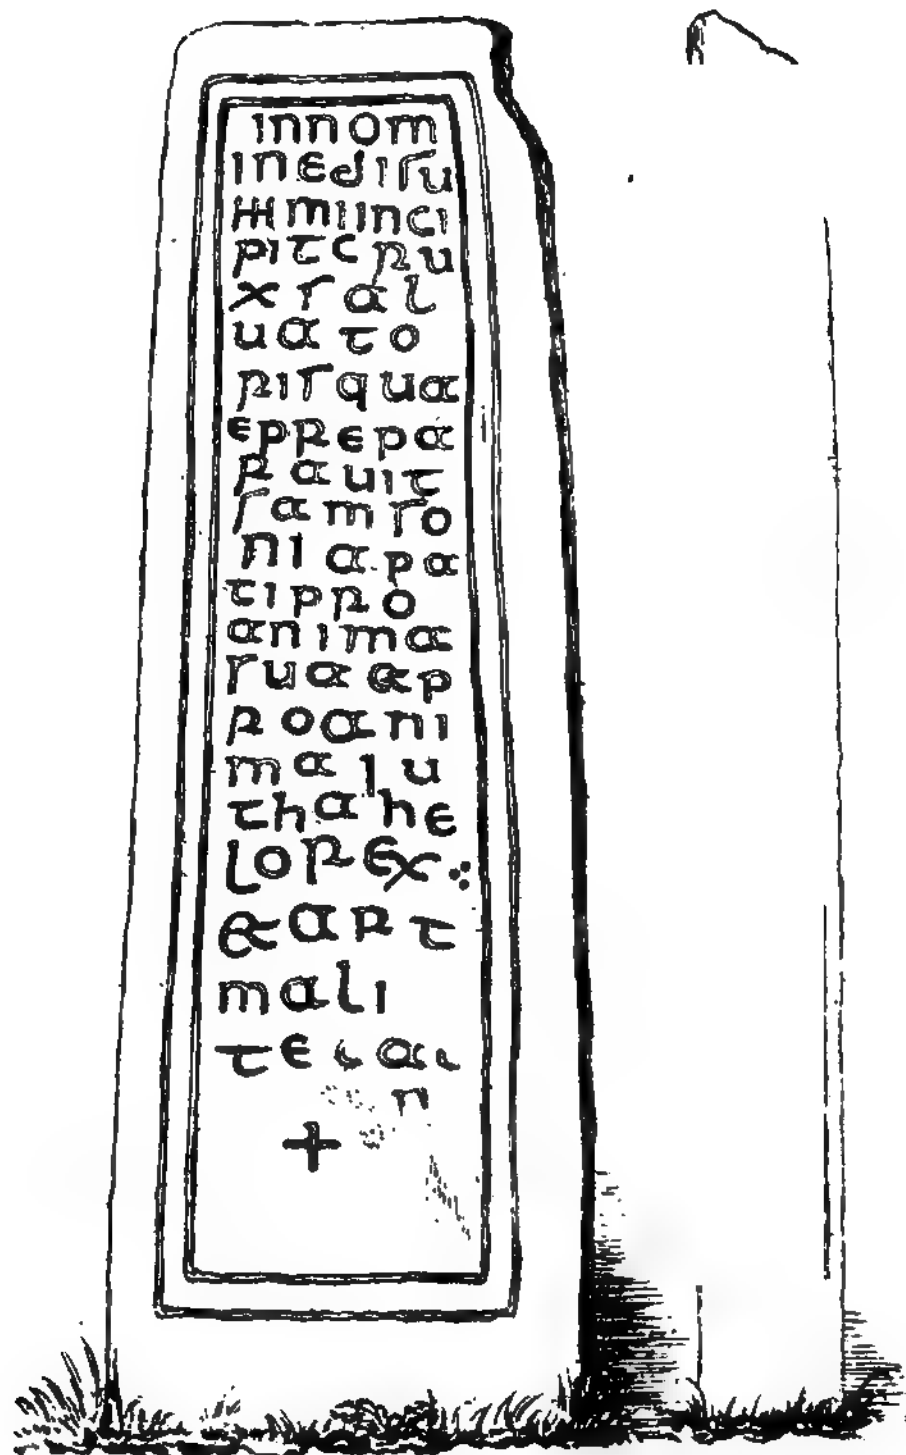 innom
inedisu
mmiinci
pitcru
xsal
uato
risqua
eprepa
rauit
samso
niapa
tipro
anima
sua&p
roani
maiu
thahe
lorex ∴
&art
mali
te
+